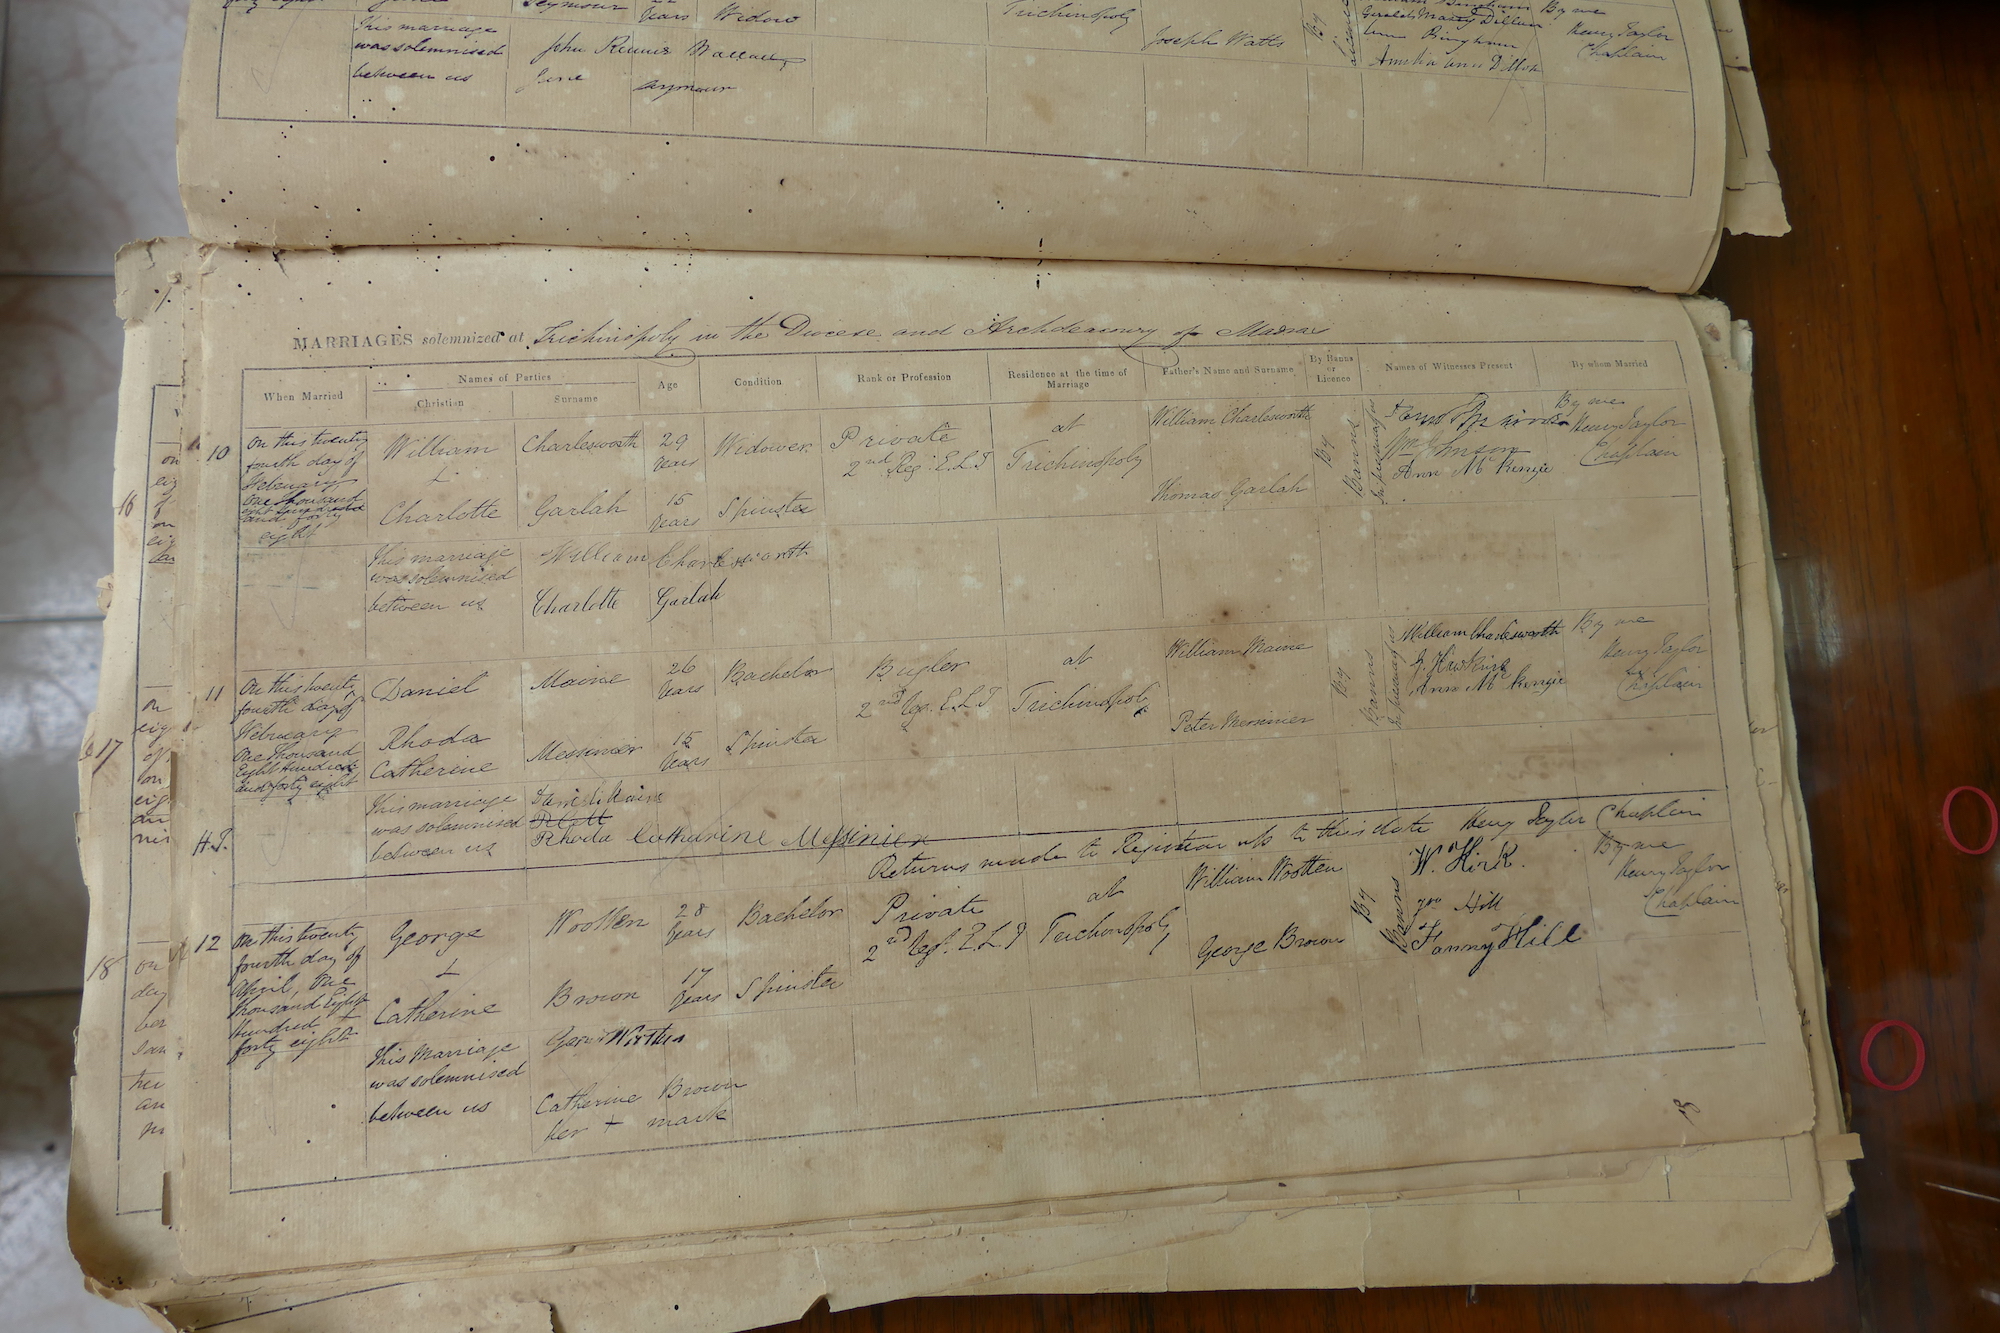 Seymour Years Widow Trichinopoly Joseph Watts By Henry Taylor
This marriage
was solemnised John Rennie Wallace Chaplain
between us Jane Seymour
MARRIAGES solemnized at Trichinopoly in the Diocese and Archdeaconry of Madras
When Married Names of Parties Age Condition Rank or Profession Residence at the time of Marriage Father's Name and Surname By Banns or Licence Names of Witnesses Present By whom Married
Christian Surname
10 On this twenty
fourth day of
February
One thousand
eight hundred
and forty
eight
William Charlesworth 29 Years Widower Private 2nd Reg. E.L.I at Trichinopoly William Charlesworth By Banns
Wm Johnson
Ann McKenzie
By me
Henry Taylor
Chaplain
&
Charlotte Garlah 15 Years Spinster Thomas Garlah
This marriage
was solemnised
between us
William Charlesworth
Charlotte Garlah
11 On this twenty
fourth day of
February
One thousand
Eight Hundred
and forty eight
Daniel Maine 26 Years Bachelor Bugler 2nd Reg. E.L.I at Trichinopoly William Maine By Banns
William Charlesworth
J. Hawkins
Ann McKenzie
By me
Henry Taylor
Chaplain
Rhoda
Catherine Messinier 15 Years Spinster Peter Messinier
This marriage
was solemnised
between us
Daniel Maine
Rhoda Catherine Messinier
H.T.
Returns made to Registrar up to this date Henry Taylor Chaplain
12 On this twenty
fourth day of
April, One
thousand Eight
Hundred &
forty eight
George Wootten 28 Years Bachelor Private 2nd Regt. E L I at Trichinopoly William Wootten By Banns
W. Kirk.
Hill
Fanny Hill
By me
Henry Taylor
Chaplain
&
Catherine Brown 17 Years Spinster George Brown
This Marriage
was solemnised
between us
Catherine Brown
her + mark
16
17
18